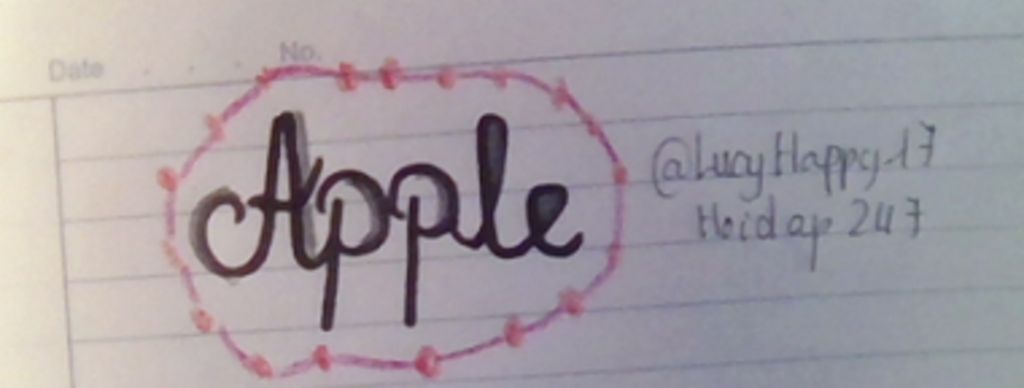 Date No.
Apple
@LucyHappy-17
Hoidap 247